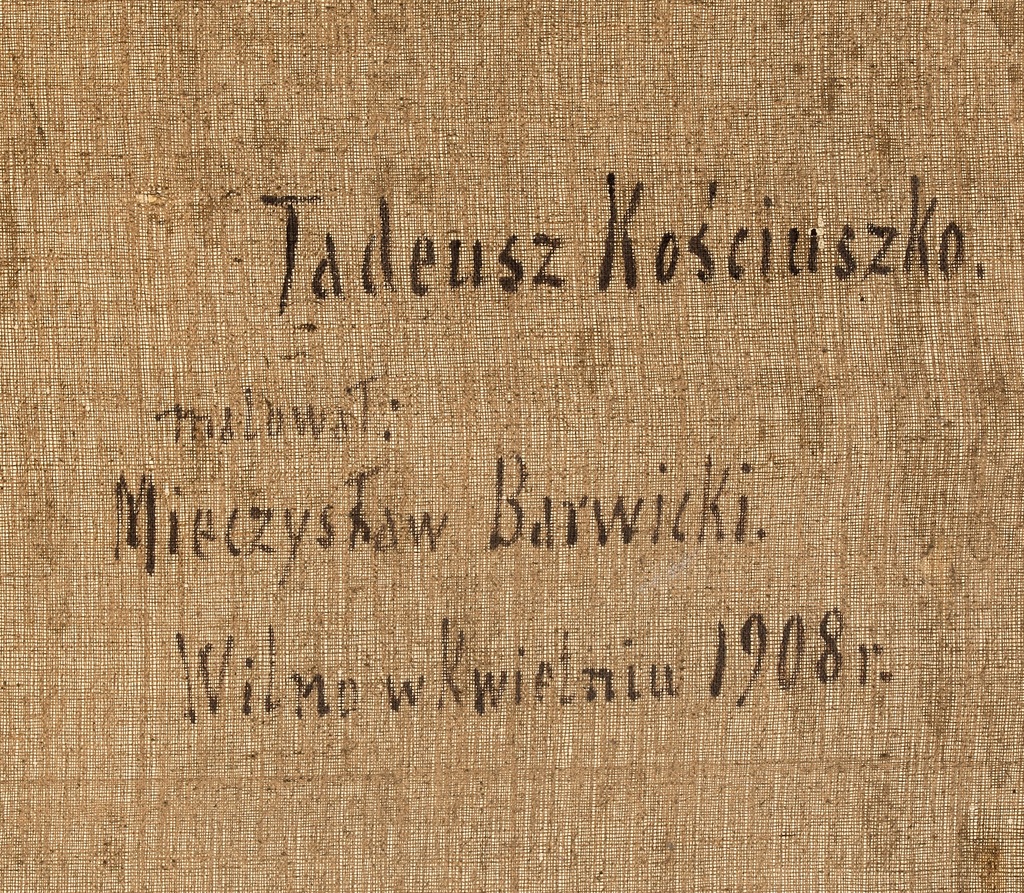 Tadeusz Kościuszko.
malował:
Mieczysław Barwicki.
Wilno w Kwietniu 1908 r.